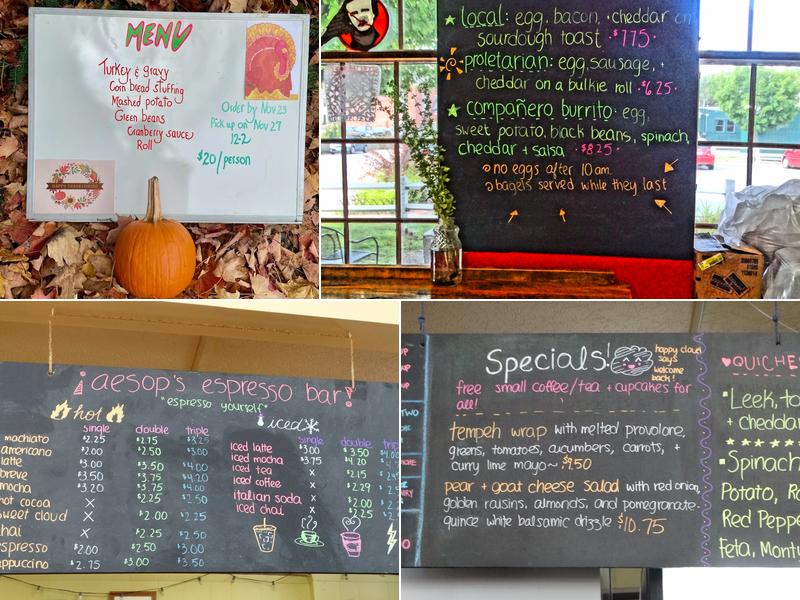 MENU
Turkey & gravy
Corn bread stuffing
Mashed potato
Green beans
Cranberry sauce
Roll
Order by Nov 23
Pick up on Nov 27
12-2
$20/person
HAPPY THANKSGIVING
★ local: egg, bacon, cheddar on
sourdough toast $7.75
proletarian: egg, sausage, +
cheddar on a bulkie roll $6.25
★ compañero burrito: egg,
sweet potato, black beans, spinach,
cheddar + salsa $8.25
no eggs after 10am
bagels served while they last
¡aesop's espresso bar!
"espresso yourself"
hot
single double triple
machiato $2.25 $2.75 $3.25
americano $2.00 $2.50 $3.00
latte $3.00 $3.50 $4.00
breve $3.50 $3.75 $4.20
mocha $3.20 $3.75 $4.00
hot cocoa X $2.25 $2.50
sweet cloud X $2.00 $2.25
chai X $2.25 $2.50
espresso $2.00 $2.50 $3.00
eppuccino $2.75 $3.00 $3.50
iced
single double trip
iced latte $3.00 $3.50
iced mocha $3.75 $4.20
iced tea X $2.15
iced coffee X $2.29
italian soda X $2.00
iced chai X $2.25
Specials!
happy cloud
says
welcome
back!
free small coffee/tea + cupcakes for
all!
tempeh wrap with melted provolone,
greens, tomatoes, cucumbers, carrots, +
curry lime mayo ~ $9.50
pear + goat cheese salad with red onion,
golden raisins, almonds, and pomegranate-
quince white balsamic drizzle $10.75
TWO
♥QUICHE
Leek, to
+ cheddar
Spinach
Potato, Ro
Red Peppe
Feta, Mont